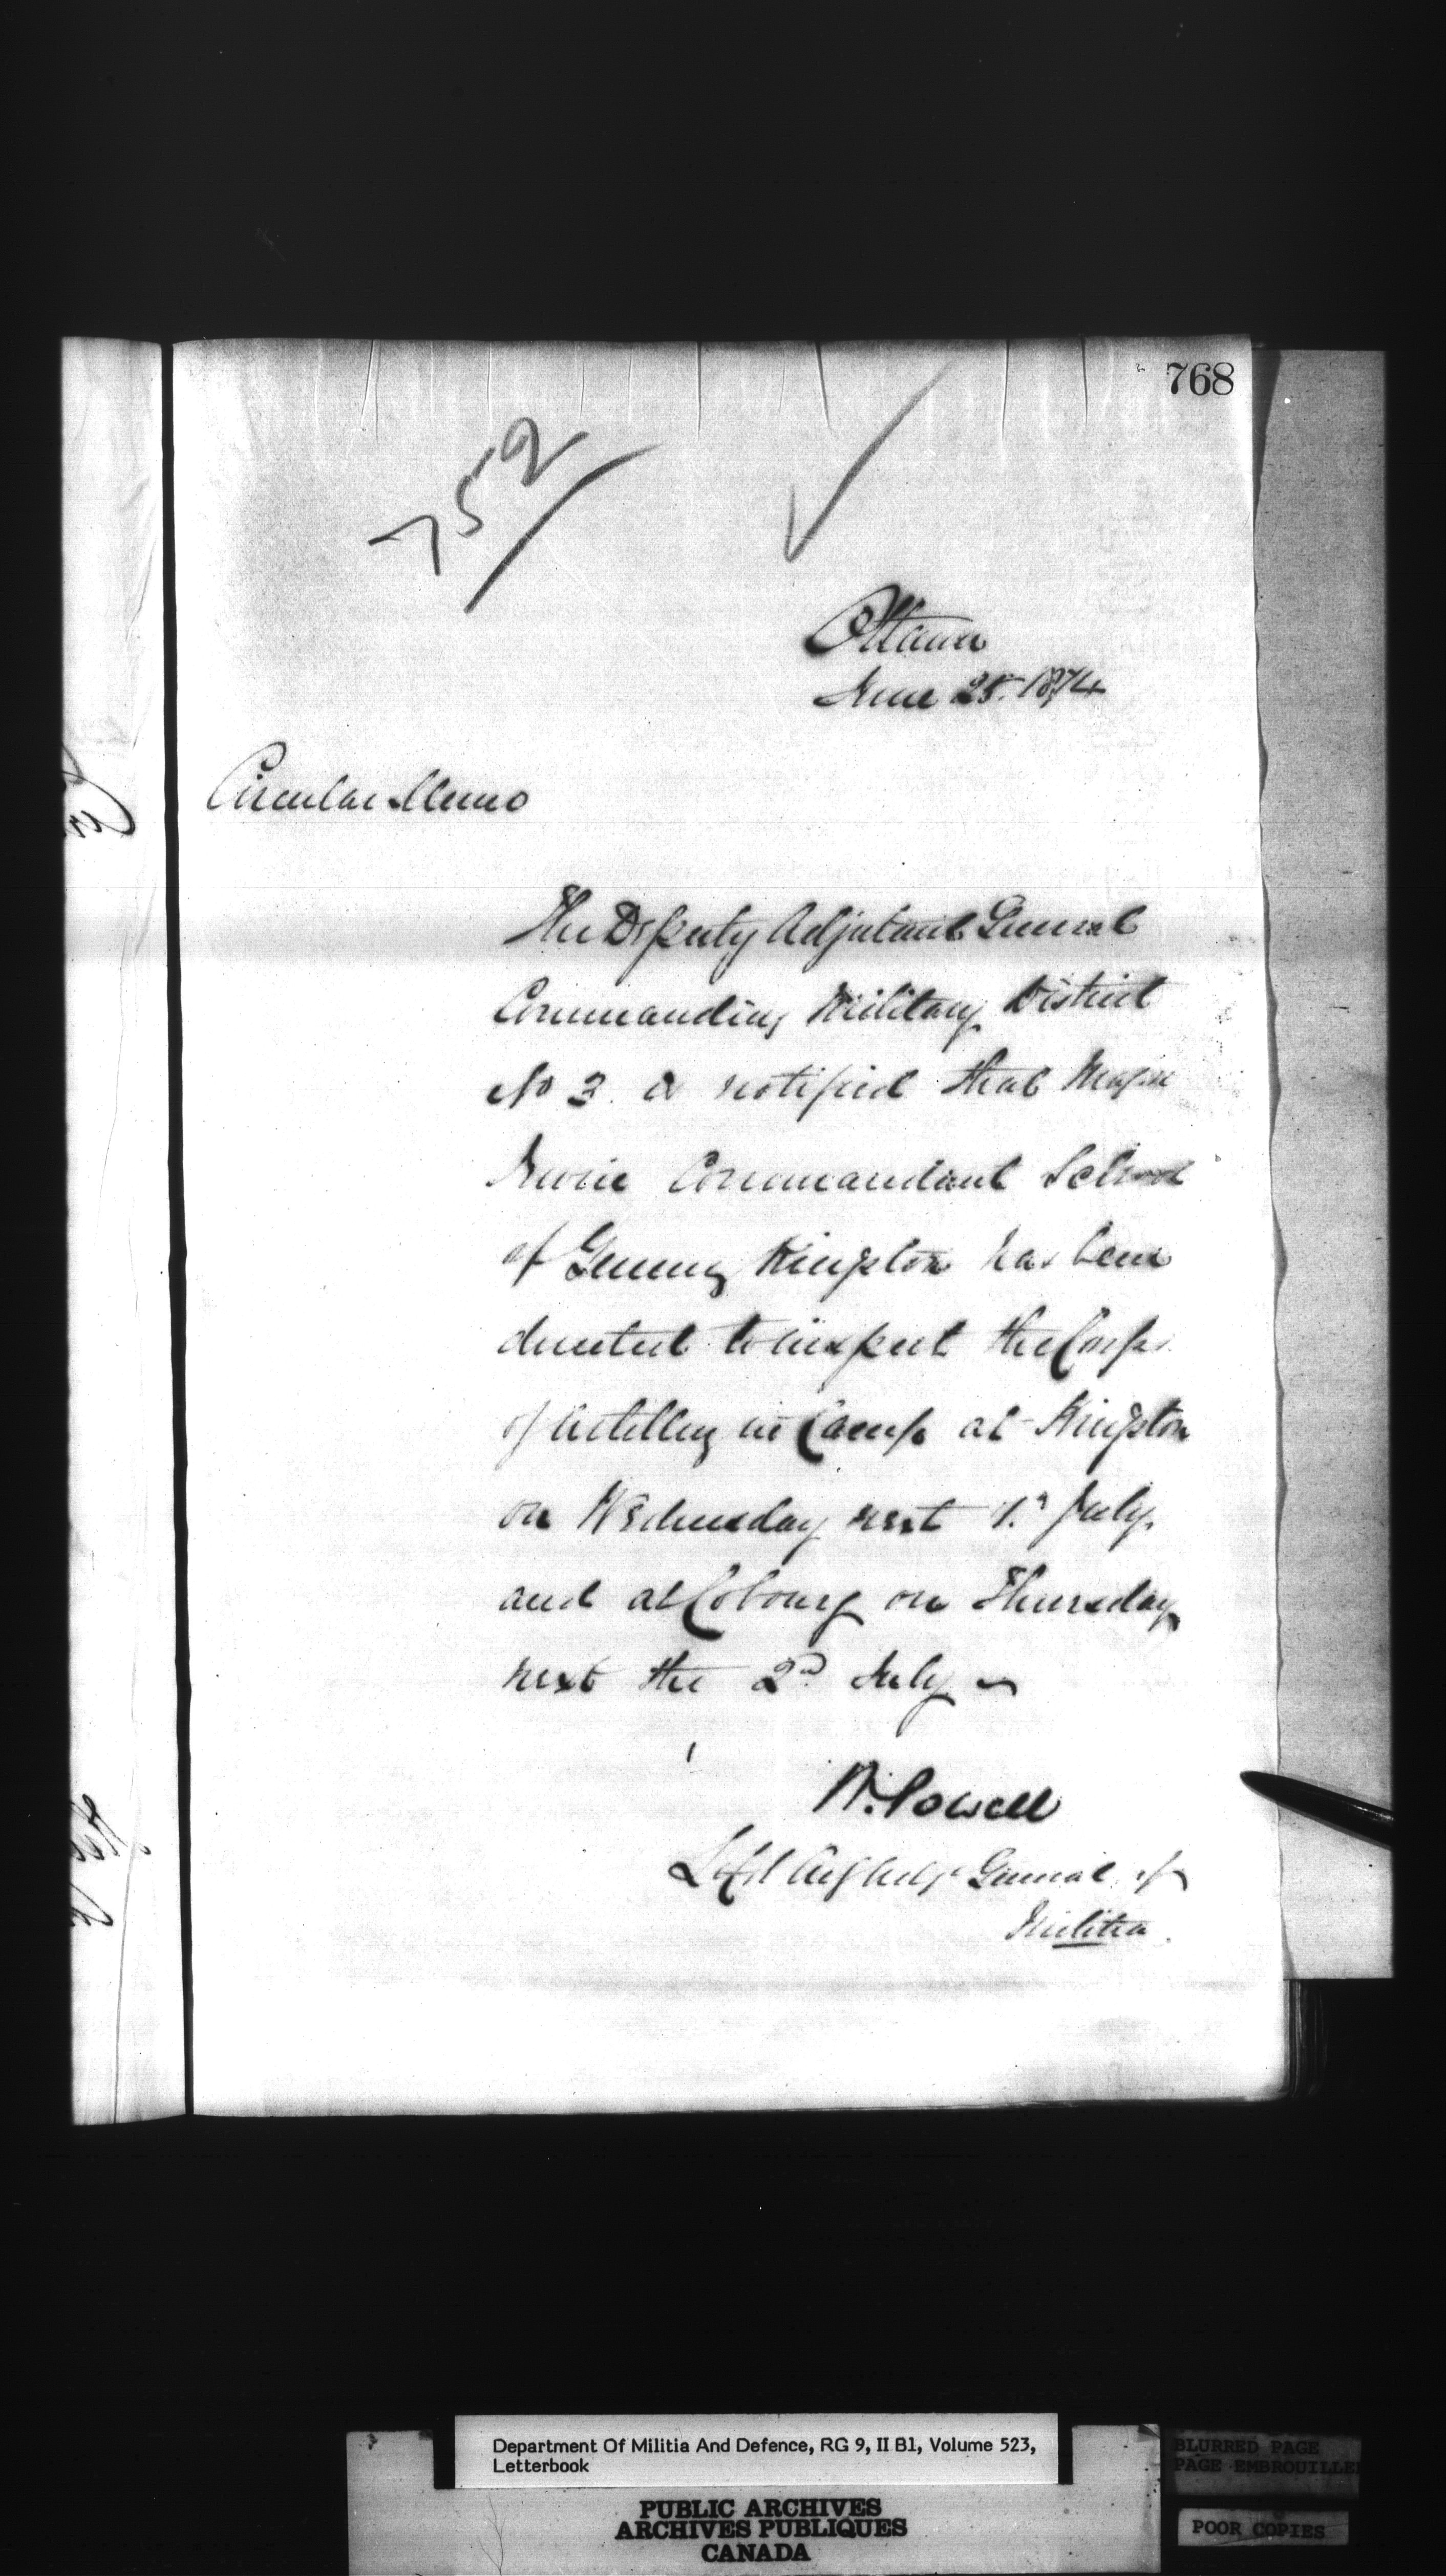 768
752
Ottawa
June 25. 1874
Circular Memo
The Deputy Adjutant General
Commanding Military District
No 3. is notified that Major
Irwin Commandant School
of Gunnery Kingston has been
directed to inspect the Corps
of Artillery in Camp at Kingston
on Wednesday next 1st July
and at Cobourg on Thursday
next the 2d July
W. Powell
Lt Col Adjt General of
Militia.
Department Of Militia And Defence, RG 9, II B1, Volume 523,
Letterbook
PUBLIC ARCHIVES
ARCHIVES PUBLIQUES
CANADA
BLURRED PAGE
PAGE EMBROUILLE
POOR COPIES